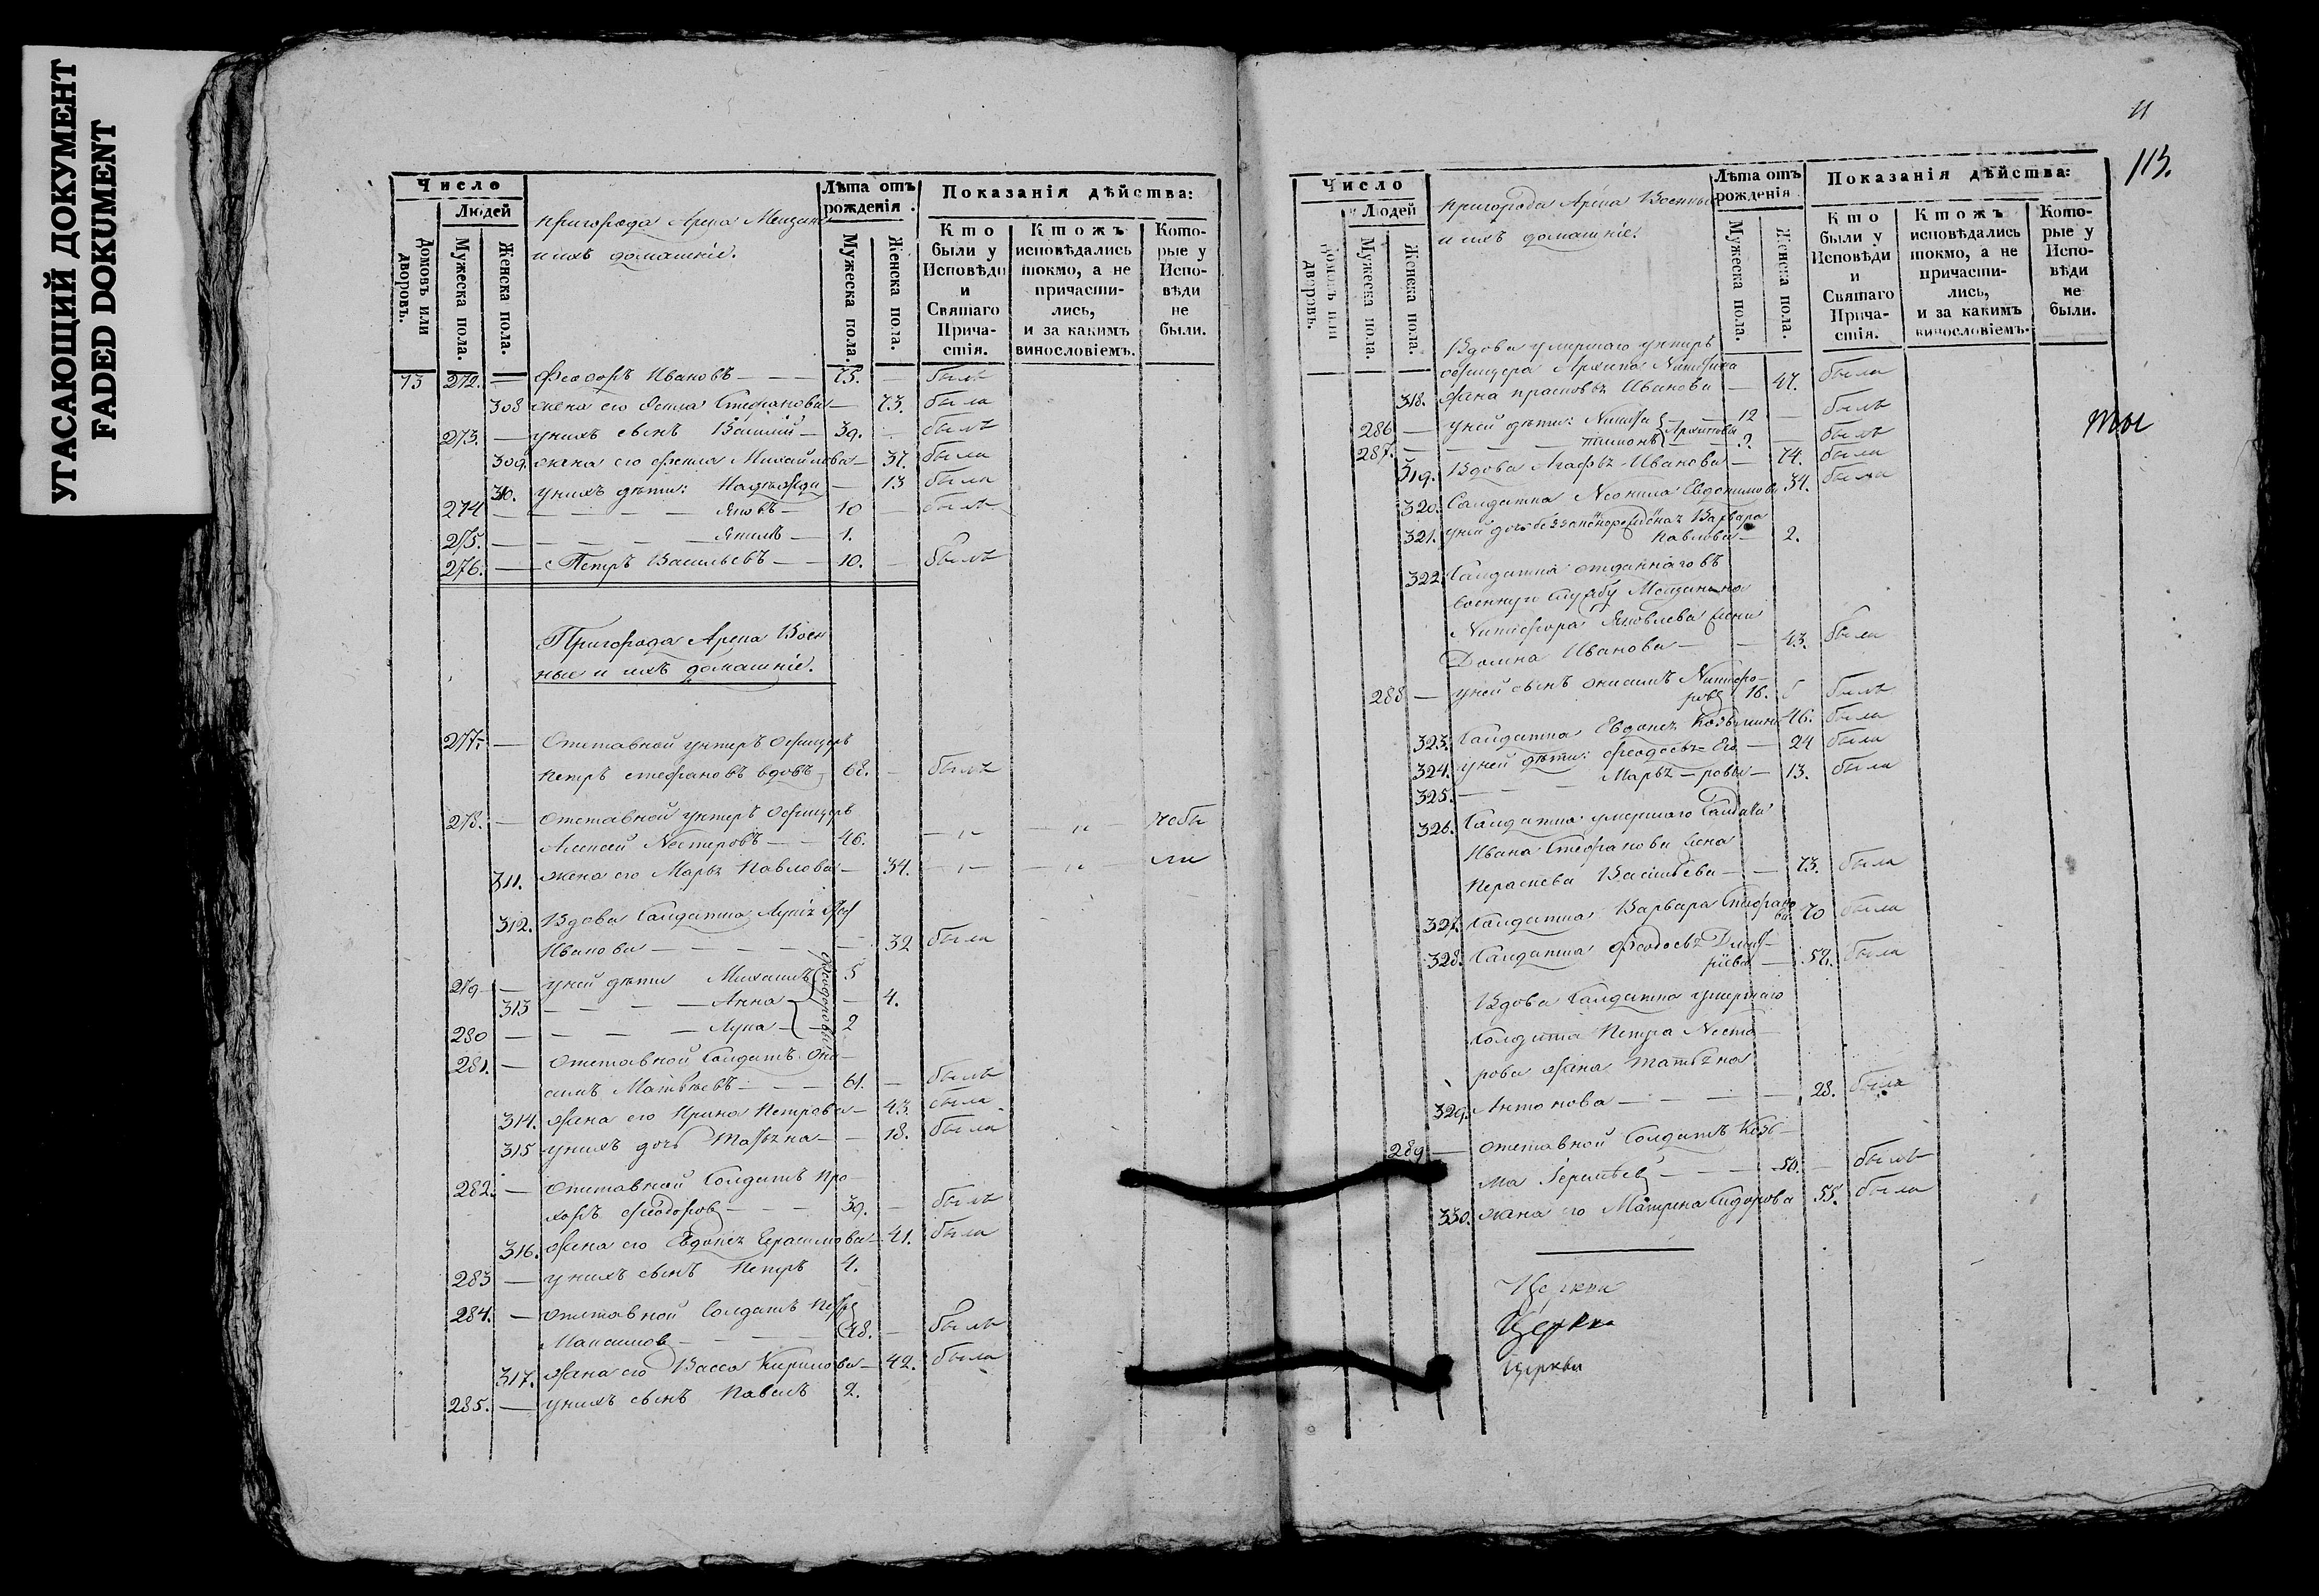 УГАСАЮЩИЙ ДОКУМЕНТ
FADED DOKUMENT
Число
Людей
Домовъ или дворовъ.
Мужеска пола.
Женска пола.
пригорода Арска Мещане
и ихъ домашніе.
Лѣта отъ рожденія.
Мужеска пола.
Женска пола.
Показанія дѣйства:
Кто были у Исповѣди и Святаго Прича-стія.
Ктожъ исповѣдались токмо, а не причасти-лись, и за какимъ винословіемъ.
Кото-рые у Испо-вѣди не были.
73 272. — Феодоръ Ивановъ — — 75. — былъ
308 жена его Стефанова — 73. была
273. — у нихъ сынъ Василій — 39. — былъ
309. жена его Михайлова — 37. была
310. у нихъ дѣти: Надежда — 13 была
274 — — — — Яковъ — 10 — былъ
275. — — — — 1.
276. — Петръ Васильевъ — — 10. — былъ
Пригорода Арска Воен
ные и ихъ домашніе.
277. — Отставной унтеръ офицеръ
Петръ Стефановъ вдовъ — 68. — былъ
278. — Отставной унтеръ офицеръ
Алексѣй Нестеровъ — — 46. — „ — — „ — небы
311. жена его Марья Павлова — 34. — „ — — „ — ли
312. Вдова Солдатка
Иванова — — — — — 32 была
279 — у ней дѣти Михаилъ 5
313 — — — — Анна — 4.
280 — — — — Лука — 2
Феодоровы
281. — Отставной Солдатъ Они-
симъ Матвѣевъ — — 61. — былъ
314. Жена его Ирина Петрова — 43. была
315 у нихъ дочь Татьяна — — 18. была
282. — Отставной Солдатъ Про-
хоръ Феодоровъ — — — 39. — былъ
316. Жена его Евдокія Герасимова — 41. была
283 — у нихъ сынъ Петръ 4.
284. — Отставной Солдатъ Петръ
Максимовъ — — — 48. — былъ
317. Жена его Васса Кирилова — 42. была
285. — у нихъ сынъ Павелъ 2.
11
113.
Число
Людей
Домовъ или дворовъ.
Мужеска пола.
Женска пола.
пригорода Арска Военные
и ихъ домашніе.
Лѣта отъ рожденія
Мужеска пола.
Женска пола.
Показанія дѣйства:
Кто были у Исповѣди и Святаго Прича-стія.
Ктожъ исповѣдались токмо, а не причасти-лись, и за какимъ винословіемъ.
Кото-рые у Испо-вѣди не были.
Вдова умершаго унтеръ
офицера Архипа Никитина
318. Жена Прасковья Иванова — 47. была
286 — у ней дѣти: Никита — 12 — былъ
287. — — — — Тимонъ Архиповы — — былъ
319. Вдова Агафья Иванова — 74. была
320. Солдатка Неонила Евдокимова 34. была
321. у ней дочь беззаконорожденная Варвара
Павлова — 2.
322. Солдатка отданнаго въ
военную службу Мещанина
Никифора Яковлева жена
Домна Иванова — — 43. была
288 — у ней сынъ Онисимъ Никифо-
ровъ 16. былъ
323. Солдатка Евдокія Козьмина 46. была
324. у ней дѣти: Феодосья Его — 24 была
325. — — — Марья — ровы — 13. была
326. Солдатка умершаго Солдата
Ивана Стефанова жена
Параскева Васильева — — 73. была
327. Солдатка Варвара Стефано
ва 70 была
328. Солдатка Феодосья Дмит-
ріева — 58. была
Вдова Солдатка умершаго
Солдата Петра Несте-
рова жена Татьяна
329. Антонова — — — — 28. была
289 — Отставной Солдатъ Козь-
ма — — — 50. — былъ
330. жена его Матрена Сидорова 55. была
Церкви
Церкви
Церкви